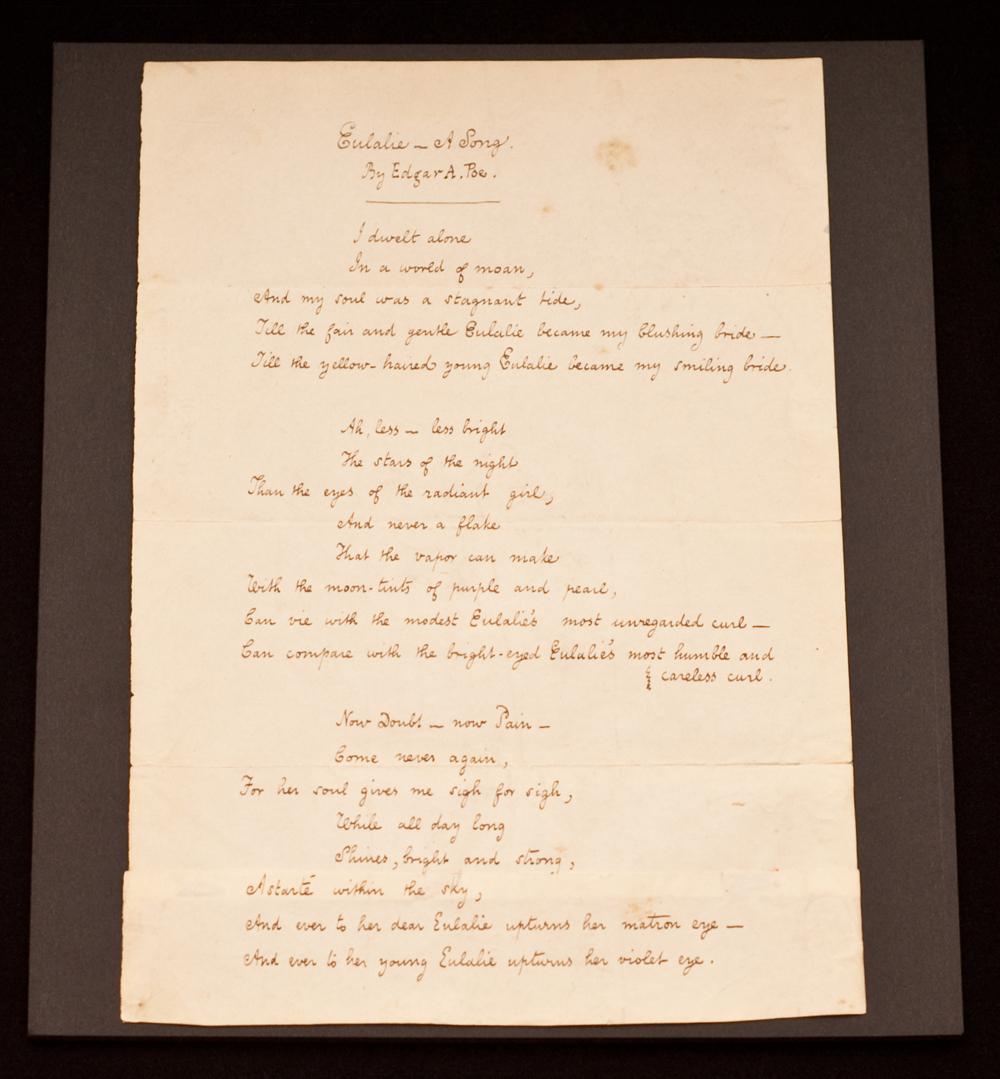 Eulalie — A Song.
By Edgar A. Poe.
I dwelt alone
In a world of moan,
And my soul was a stagnant tide,
Till the fair and gentle Eulalie became my blushing bride —
Till the yellow-haired young Eulalie became my smiling bride.
Ah, less — less bright
The stars of the night
Than the eyes of the radiant girl,
And never a flake
That the vapor can make
With the moon-tints of purple and pearl,
Can vie with the modest Eulalie's most unregarded curl —
Can compare with the bright-eyed Eulalie's most humble and
careless curl.
Now Doubt — now Pain —
Come never again,
For her soul gives me sigh for sigh,
While all day long
Shines, bright and strong,
Astarté within the sky,
And ever to her dear Eulalie upturns her matron eye —
And ever to her young Eulalie upturns her violet eye.